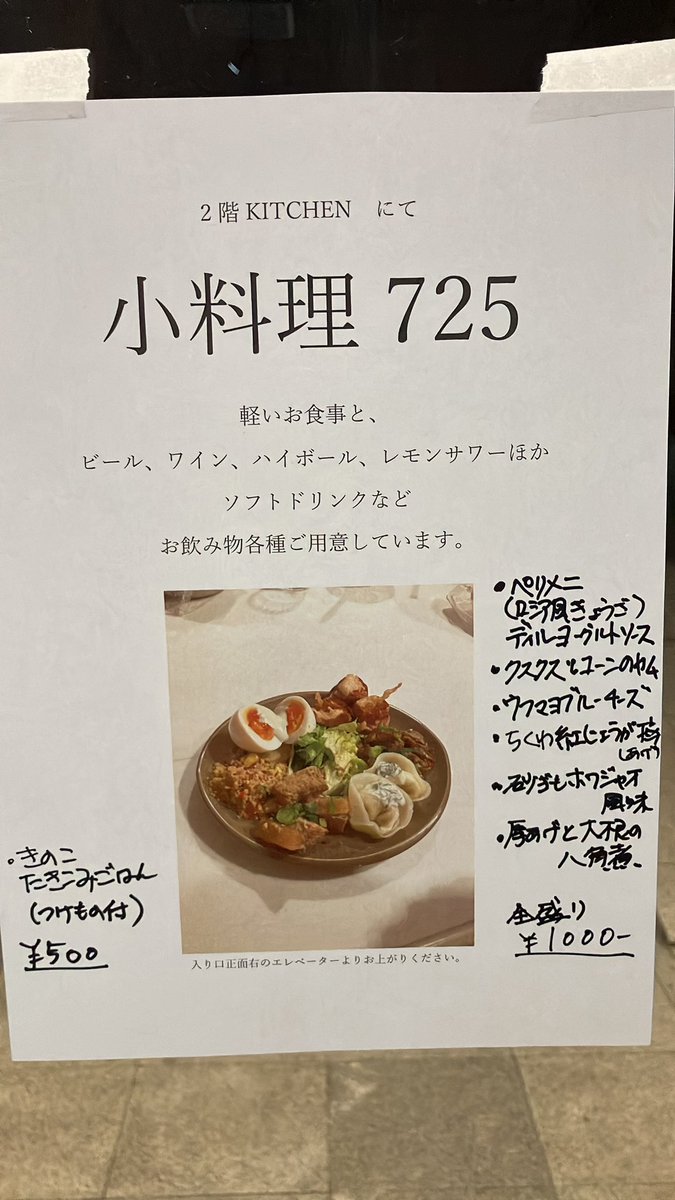 2階KITCHEN にて
小料理 725
軽いお食事と、
ビール、ワイン、ハイボール、レモンサワーほか
ソフトドリンクなど
お飲み物各種ご用意しています。
・ペリメニ
(ロシア風ぎょうざ)
ディルヨーグルトソース
・クスクスとコーンのヤム
・ウフマヨブルーチーズ
・ちくわ紅しょうが
・砂ぎもホワジャオ
風味
・厚あげと大根の
八角煮
全盛り
¥1000-
・きのこ
たきこみごはん
(つけもの付)
¥500
入り口正面右のエレベーターよりお上がりください。